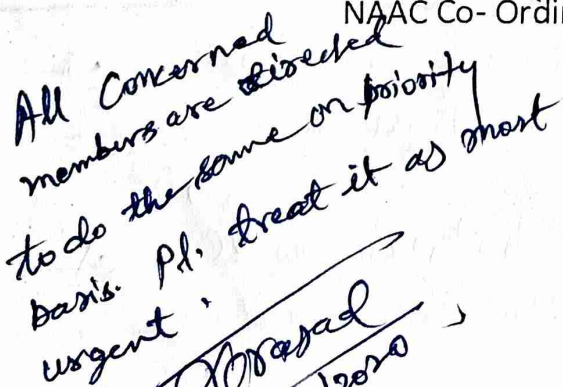 NAAC Co- Ordin
All Concerned
members are directed
to do the same on priority
basis. Pl. treat it as most
urgent.
Prasad
2020